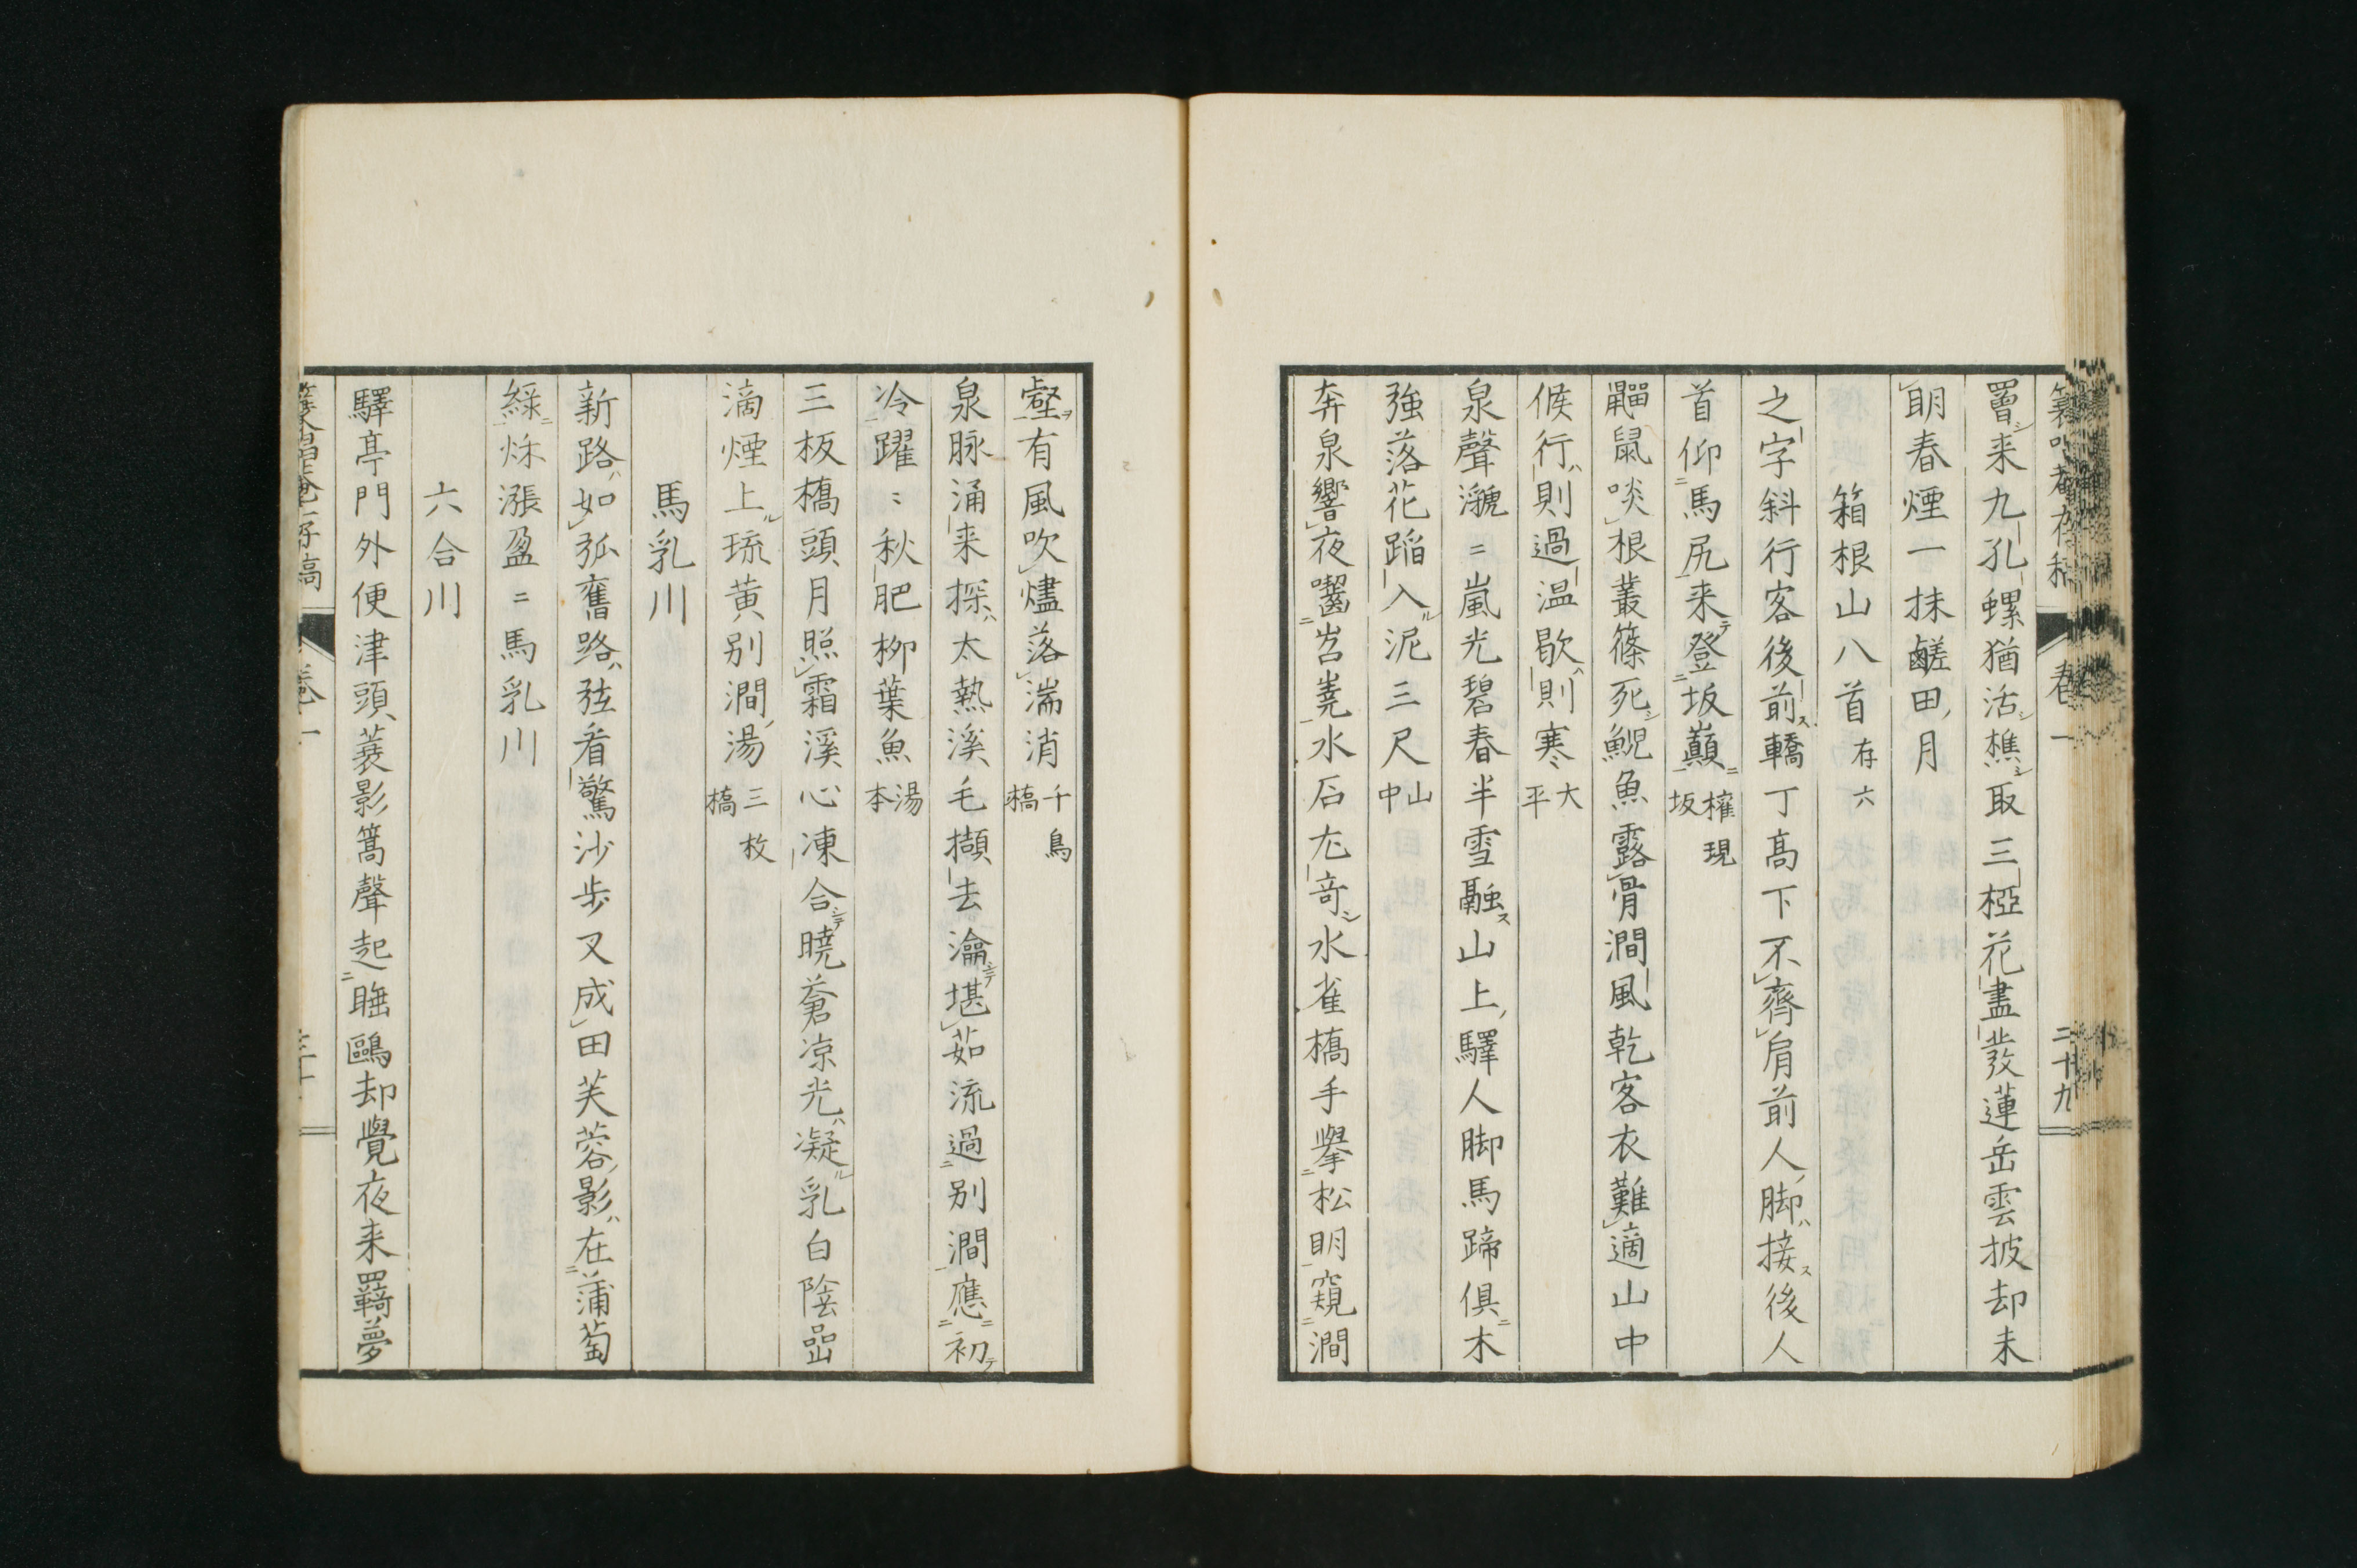 罾来九孔螺猶活樵取三椏花盡發蓮岳雲披却未
明春煙一抹鹺田月
箱根山八首存六
之字斜行客後前轎丁高下不齊肩前人脚接後人
首仰馬尻来登坂巓権現坂
鼯鼠啖根叢篠死鯢魚露骨澗風乾客衣難適山中
候行則過温歇則寒大平
泉聲㶅〻嵐光碧春半雪融山上驛人脚馬蹄俱木
強落花蹈入泥三尺山中
奔泉響夜囓岩嶤水石尤奇水雀橋手擧松明窺澗
壑有風吹燼落湍消千鳥橋
泉脉涌来探太熱溪毛擷去瀹堪茹流過別澗應初
冷躍〻秋肥柳葉魚湯本
三板橋頭月照霜溪心凍合曉蒼凉光凝乳白陰嵒
滴煙上琉黄別澗湯三枚橋
馬乳川
新路如弧舊路弦看驚沙歩又成田芙蓉影在蒲萄
緑烁漲盈〻馬乳川
六合川
驛亭門外便津頭蓑影篙聲起睡鷗却覺夜来羇夢
卷一